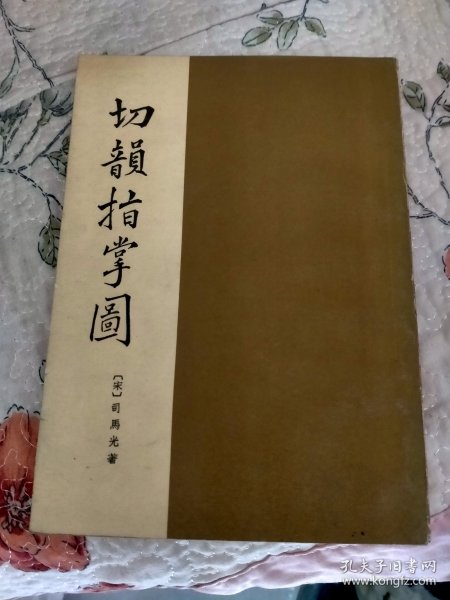 切韻指掌圖
〔宋〕司馬光著
孔夫子旧书网
www.kongfz.com